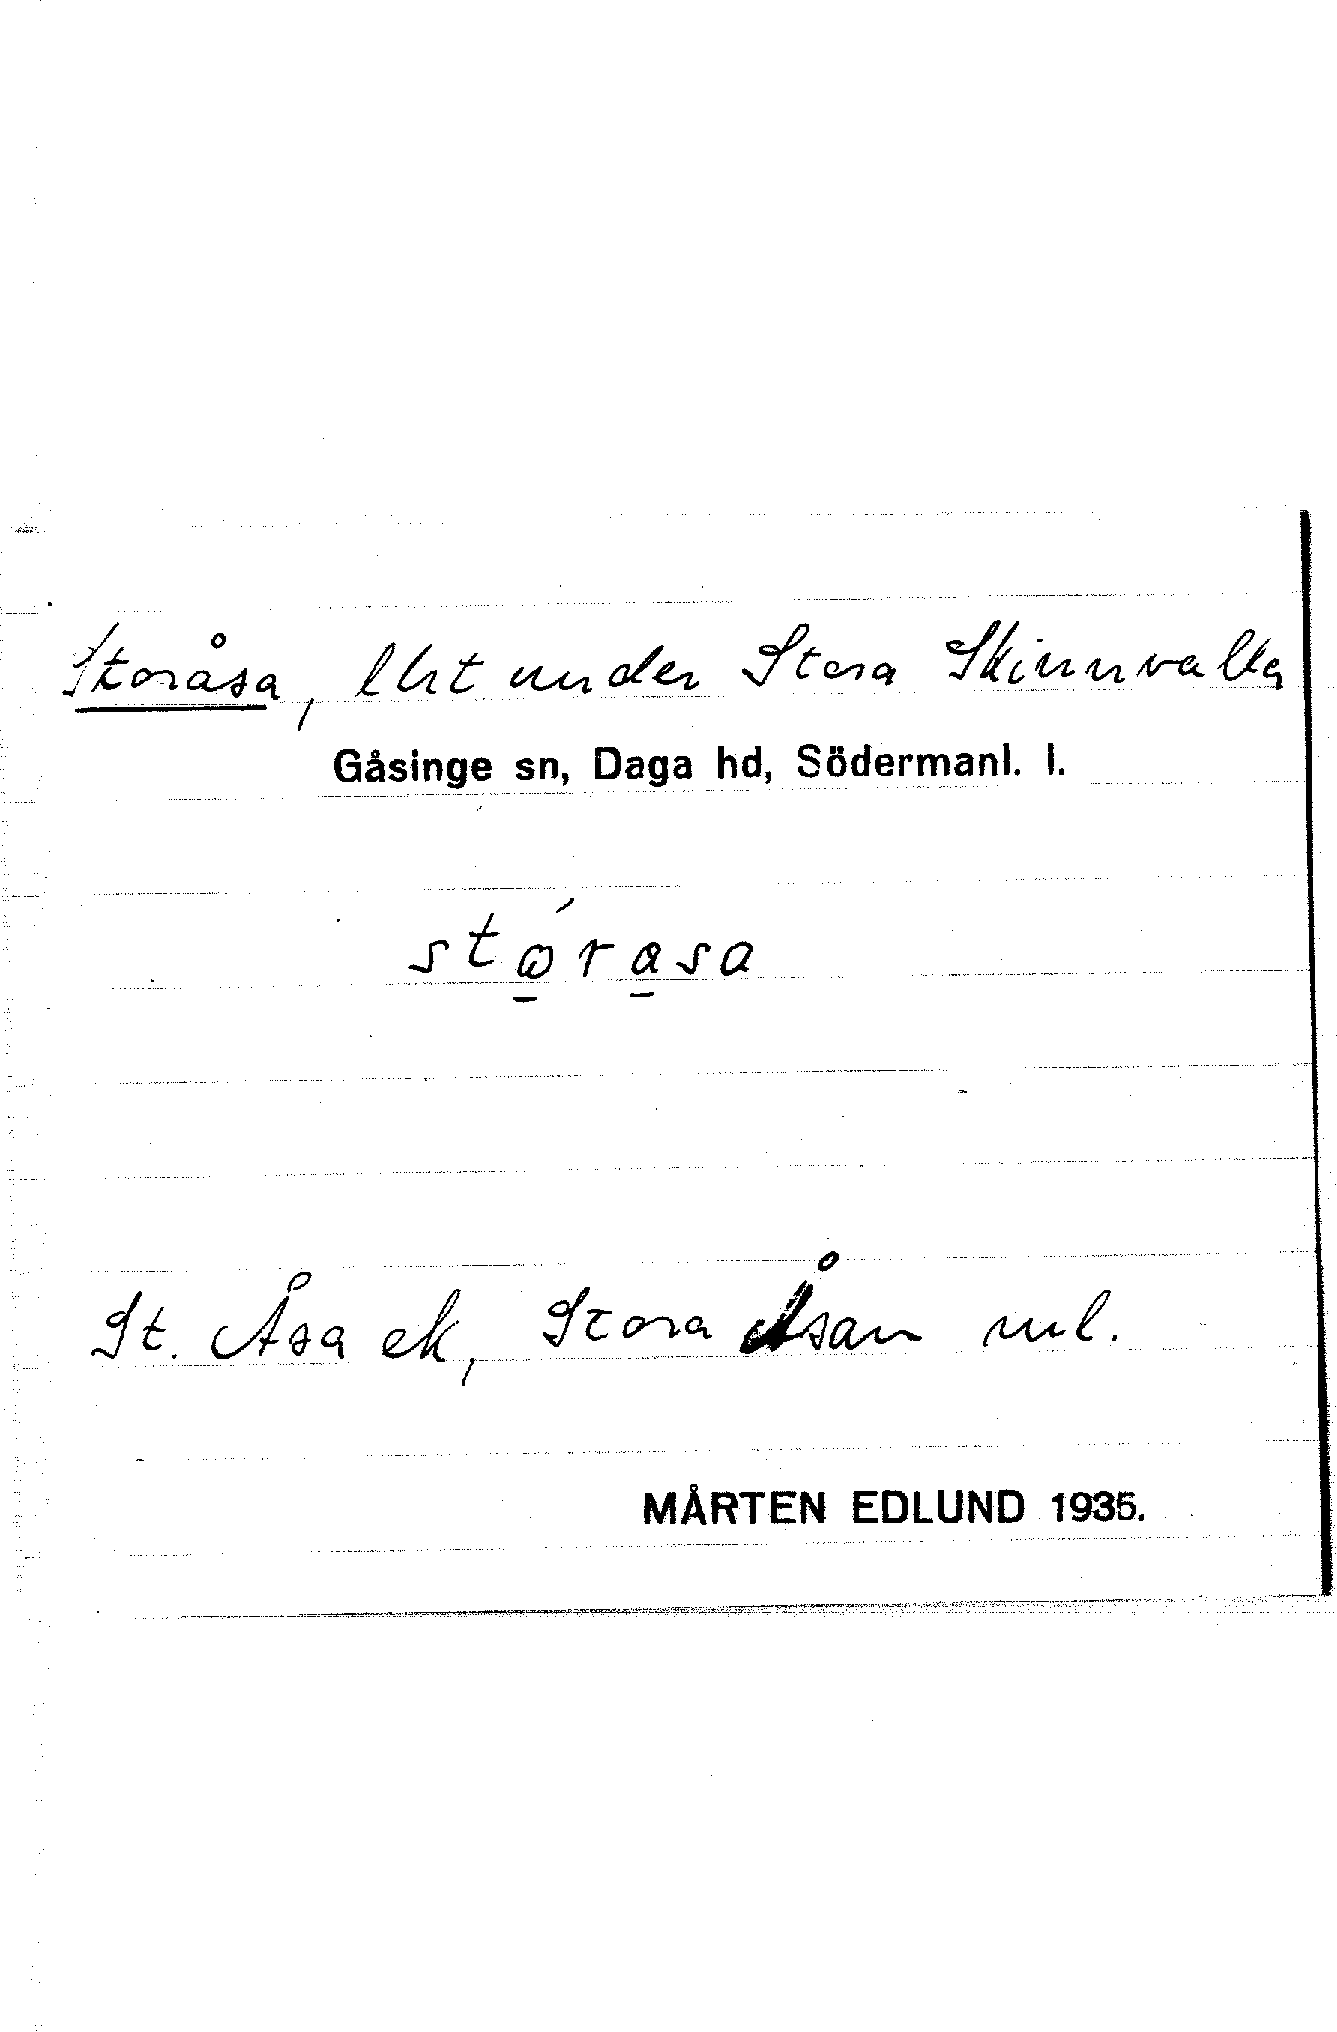 Storåsa, lht under Stora Skinnvalla
Gåsinge sn, Daga hd, Södermanl. l.
stώ̲ra̲sa
St. Åsa ek, Stora Åsan ml.
MÅRTEN EDLUND 1935.